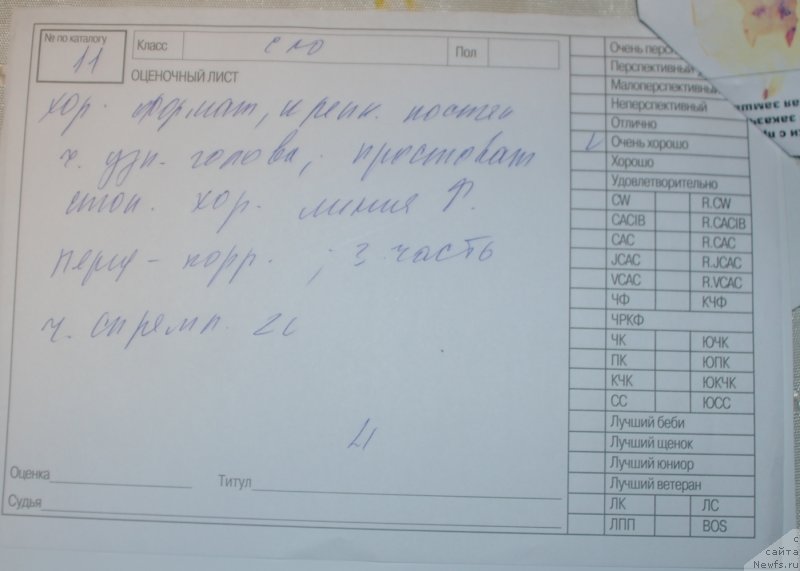 № по каталогу
11
Класс
сло
Пол
ОЦЕНОЧНЫЙ ЛИСТ
хор. формат, крепк. постен
ч. узн. голова, простоват
хор. линия
перед - корр. ; з. часть
ч. спремл.
4
Оценка
Титул
Судья
Очень персп
Перспективный
Малоперспективный
Неперспективный
Отлично
Очень хорошо
Хорошо
Удовлетворительно
CW R.CW
CACIB R.CACIB
CAC R.CAC
JCAC R.JCAC
VCAC R.VCAC
ЧФ КЧФ
ЧРКФ
ЧК ЮЧК
ПК ЮПК
КЧК ЮКЧК
СС ЮСС
Лучший беби
Лучший щенок
Лучший юниор
Лучший ветеран
ЛК ЛС
ЛПП BOS
с
сайта
Newfs.ru